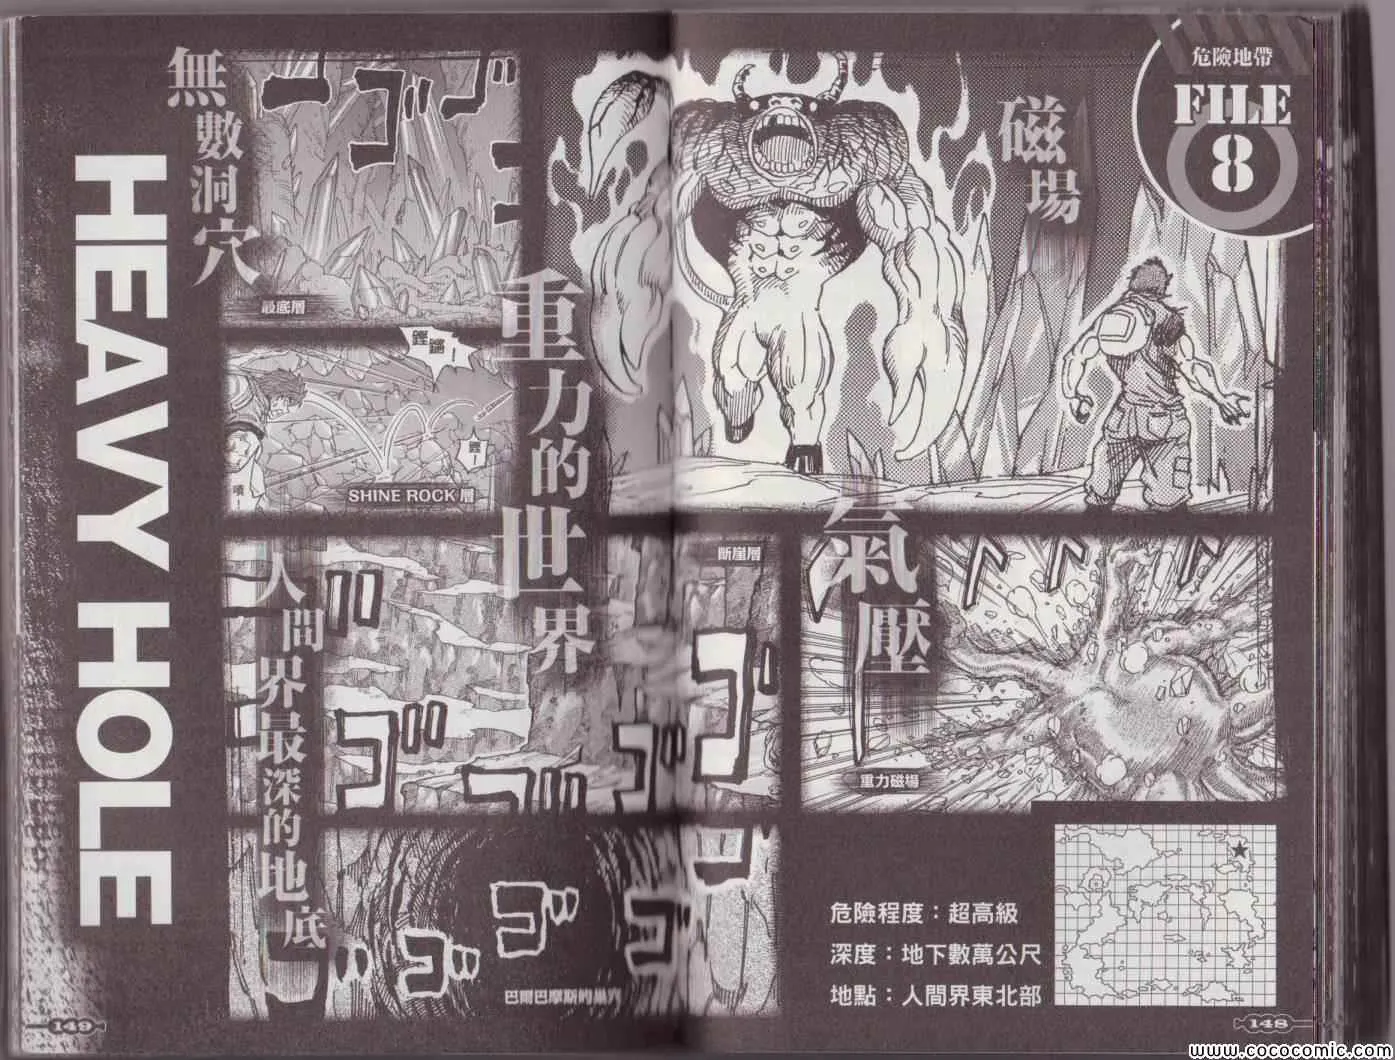 危險地帶
FILE
8
磁場
氣壓
重力的世界
無數洞穴
人間界最深的地底
HEAVY HOLE
最底層
鏗鏘!
SHINE ROCK 層
噴
断崖層
重力磁場
巴爾巴摩斯的巢穴
ゴゴ
ゴゴゴゴゴ
ゴゴゴ
危險程度：超高級
深度：地下數萬公尺
地點：人間界東北部
149
148
www.cococomic.com